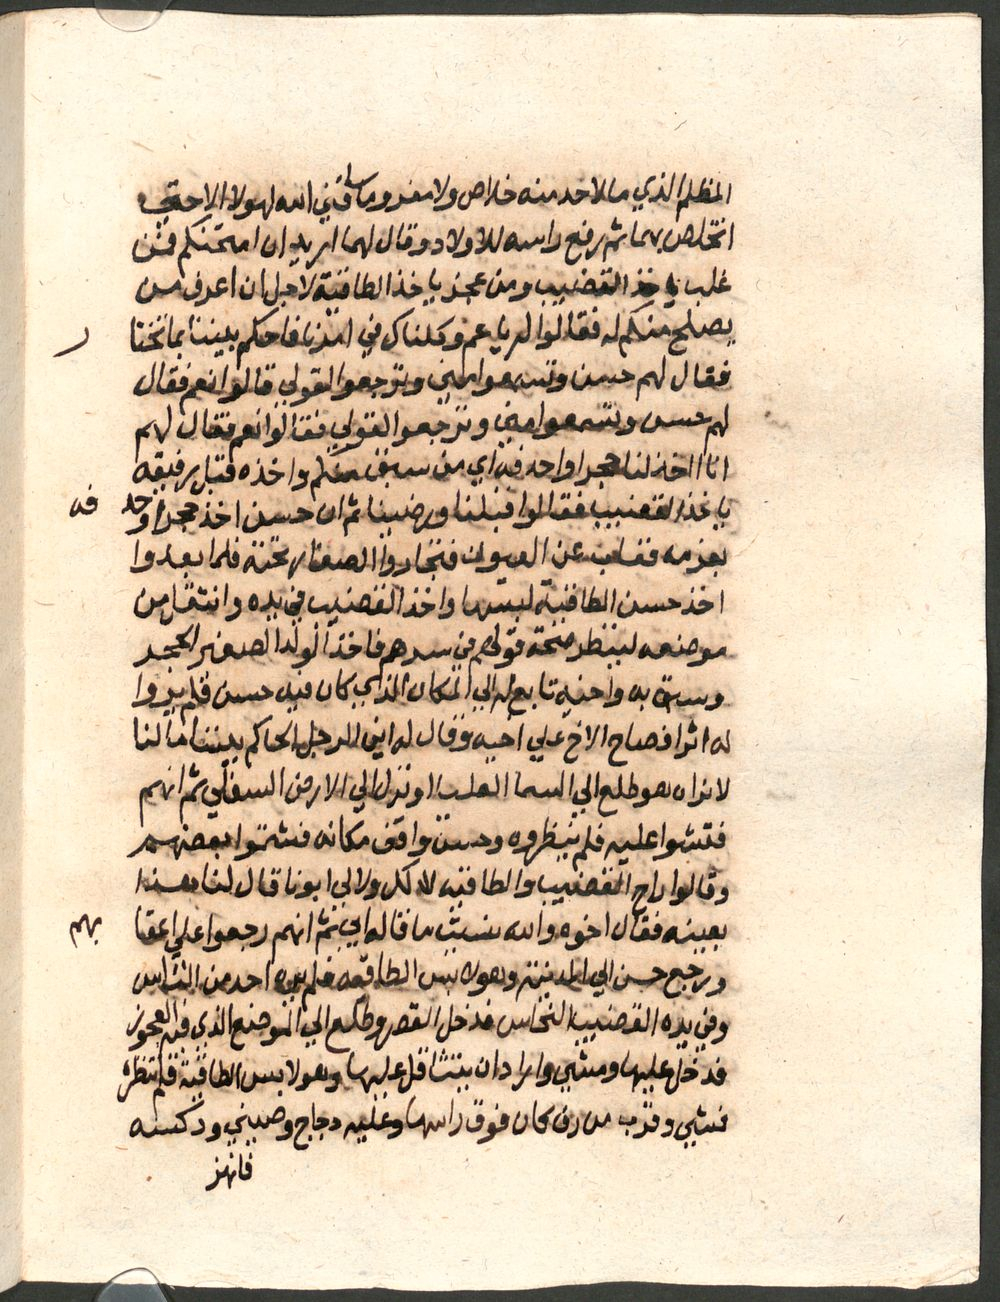 المظلم الذي ما لاحد منه خلاص ولا مفر وما ساقني الله لهولاء الا حتي
اتخلص بهما ثم رفع راسه للاولاد وقال لهما اريد ان امتحنكم فمن
غلب ياخذ القضيب ومن عجز ياخذ الطاقية لاجل ان اعرف من
يصلح منكم له فقالوا له يا عم وكلناك في امرنا فاحكم بيننا بما تختا
ر
فقال لهم حسن وتسمعوا مني وترجعوا لقولي قالوا نعم فقال
لهم حسن وتسمعوا مني وترجعوا لقولي فقالوا نعم فقال لهم
انا اخذ لنا حجرا واحد فه اي من سبق منكم واخذه قبل رفيقه
ياخذ القضيب فقالوا قبلنا ورضينا ثم ان حسن اخذ حجرا واحد
فه
بعزمه فغاب عن العيون فتجاروا الصغار تحته فلما بعدوا
اخذ حسن الطاقية لبسها واخذ القضيب في يده وانتقل من
موضعه لينظر صحة قولهم في سرهم فاخذ الولد الصغير الحجر
وسبق به واخيه تابع له الي المكان الذي كان فيه حسن فلم يروا
له اثرا فصاح الاخ علي اخيه وقال له اين الرجل الحاكم بيننا ما لنا
لا نراه هو طلع الي السما العليا او نزل الي الارض السفلي ثم انهم
فتشوا عليه فلم ينظروه وحسن واقف مكانه فشتموا بعضهم
وقالوا راح القضيب والطاقيه لا لك ولا لي ابونا قال لنا هذا
بعينه فقال اخوه والله نسيت ما قاله ابي ثم انهم رجعوا علي اعقا
بهم
ورجع حسن الي المدينة وهو لابس الطاقيه فلم يره احد من الناس
وفي يده القضيب النحاس فدخل القصر وطلع الي الموضع الذي فيه العجوز
فدخل عليها ومشي واراد ان يتثاقل عليها وهو لابس الطاقية فلم تنظره
فمشي وقرب من رف كان فوق راسها وعليه دجاج وصيني ودكسه
فانهز